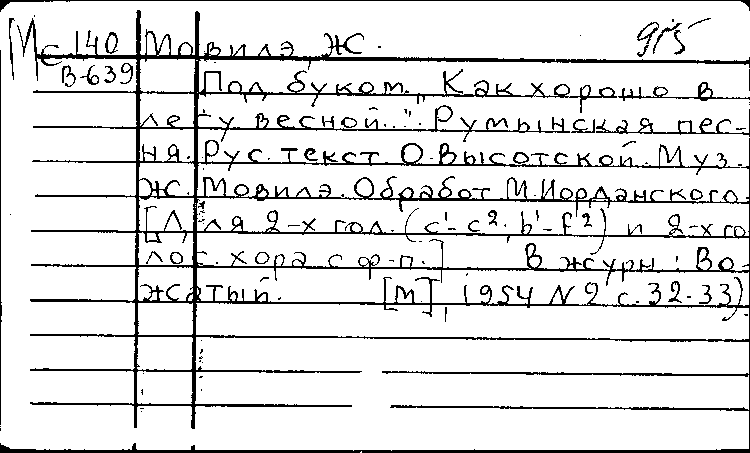 Мс 140 Мовилэ, Ж. 915
В-639 Под буком. „Как хорошо в
лесу весной..." Румынская пес-
ня. Рус. текст О. Высотской. Муз.
Ж. Мовилэ. Обработ М. Иорданского.
[Для 2-х гол. (c'-c²; b'-f²) и 2-х го
лос. хора с ф-п.] В журн: Во-
жатый. [М], 1954 № 2 с. 32-33)